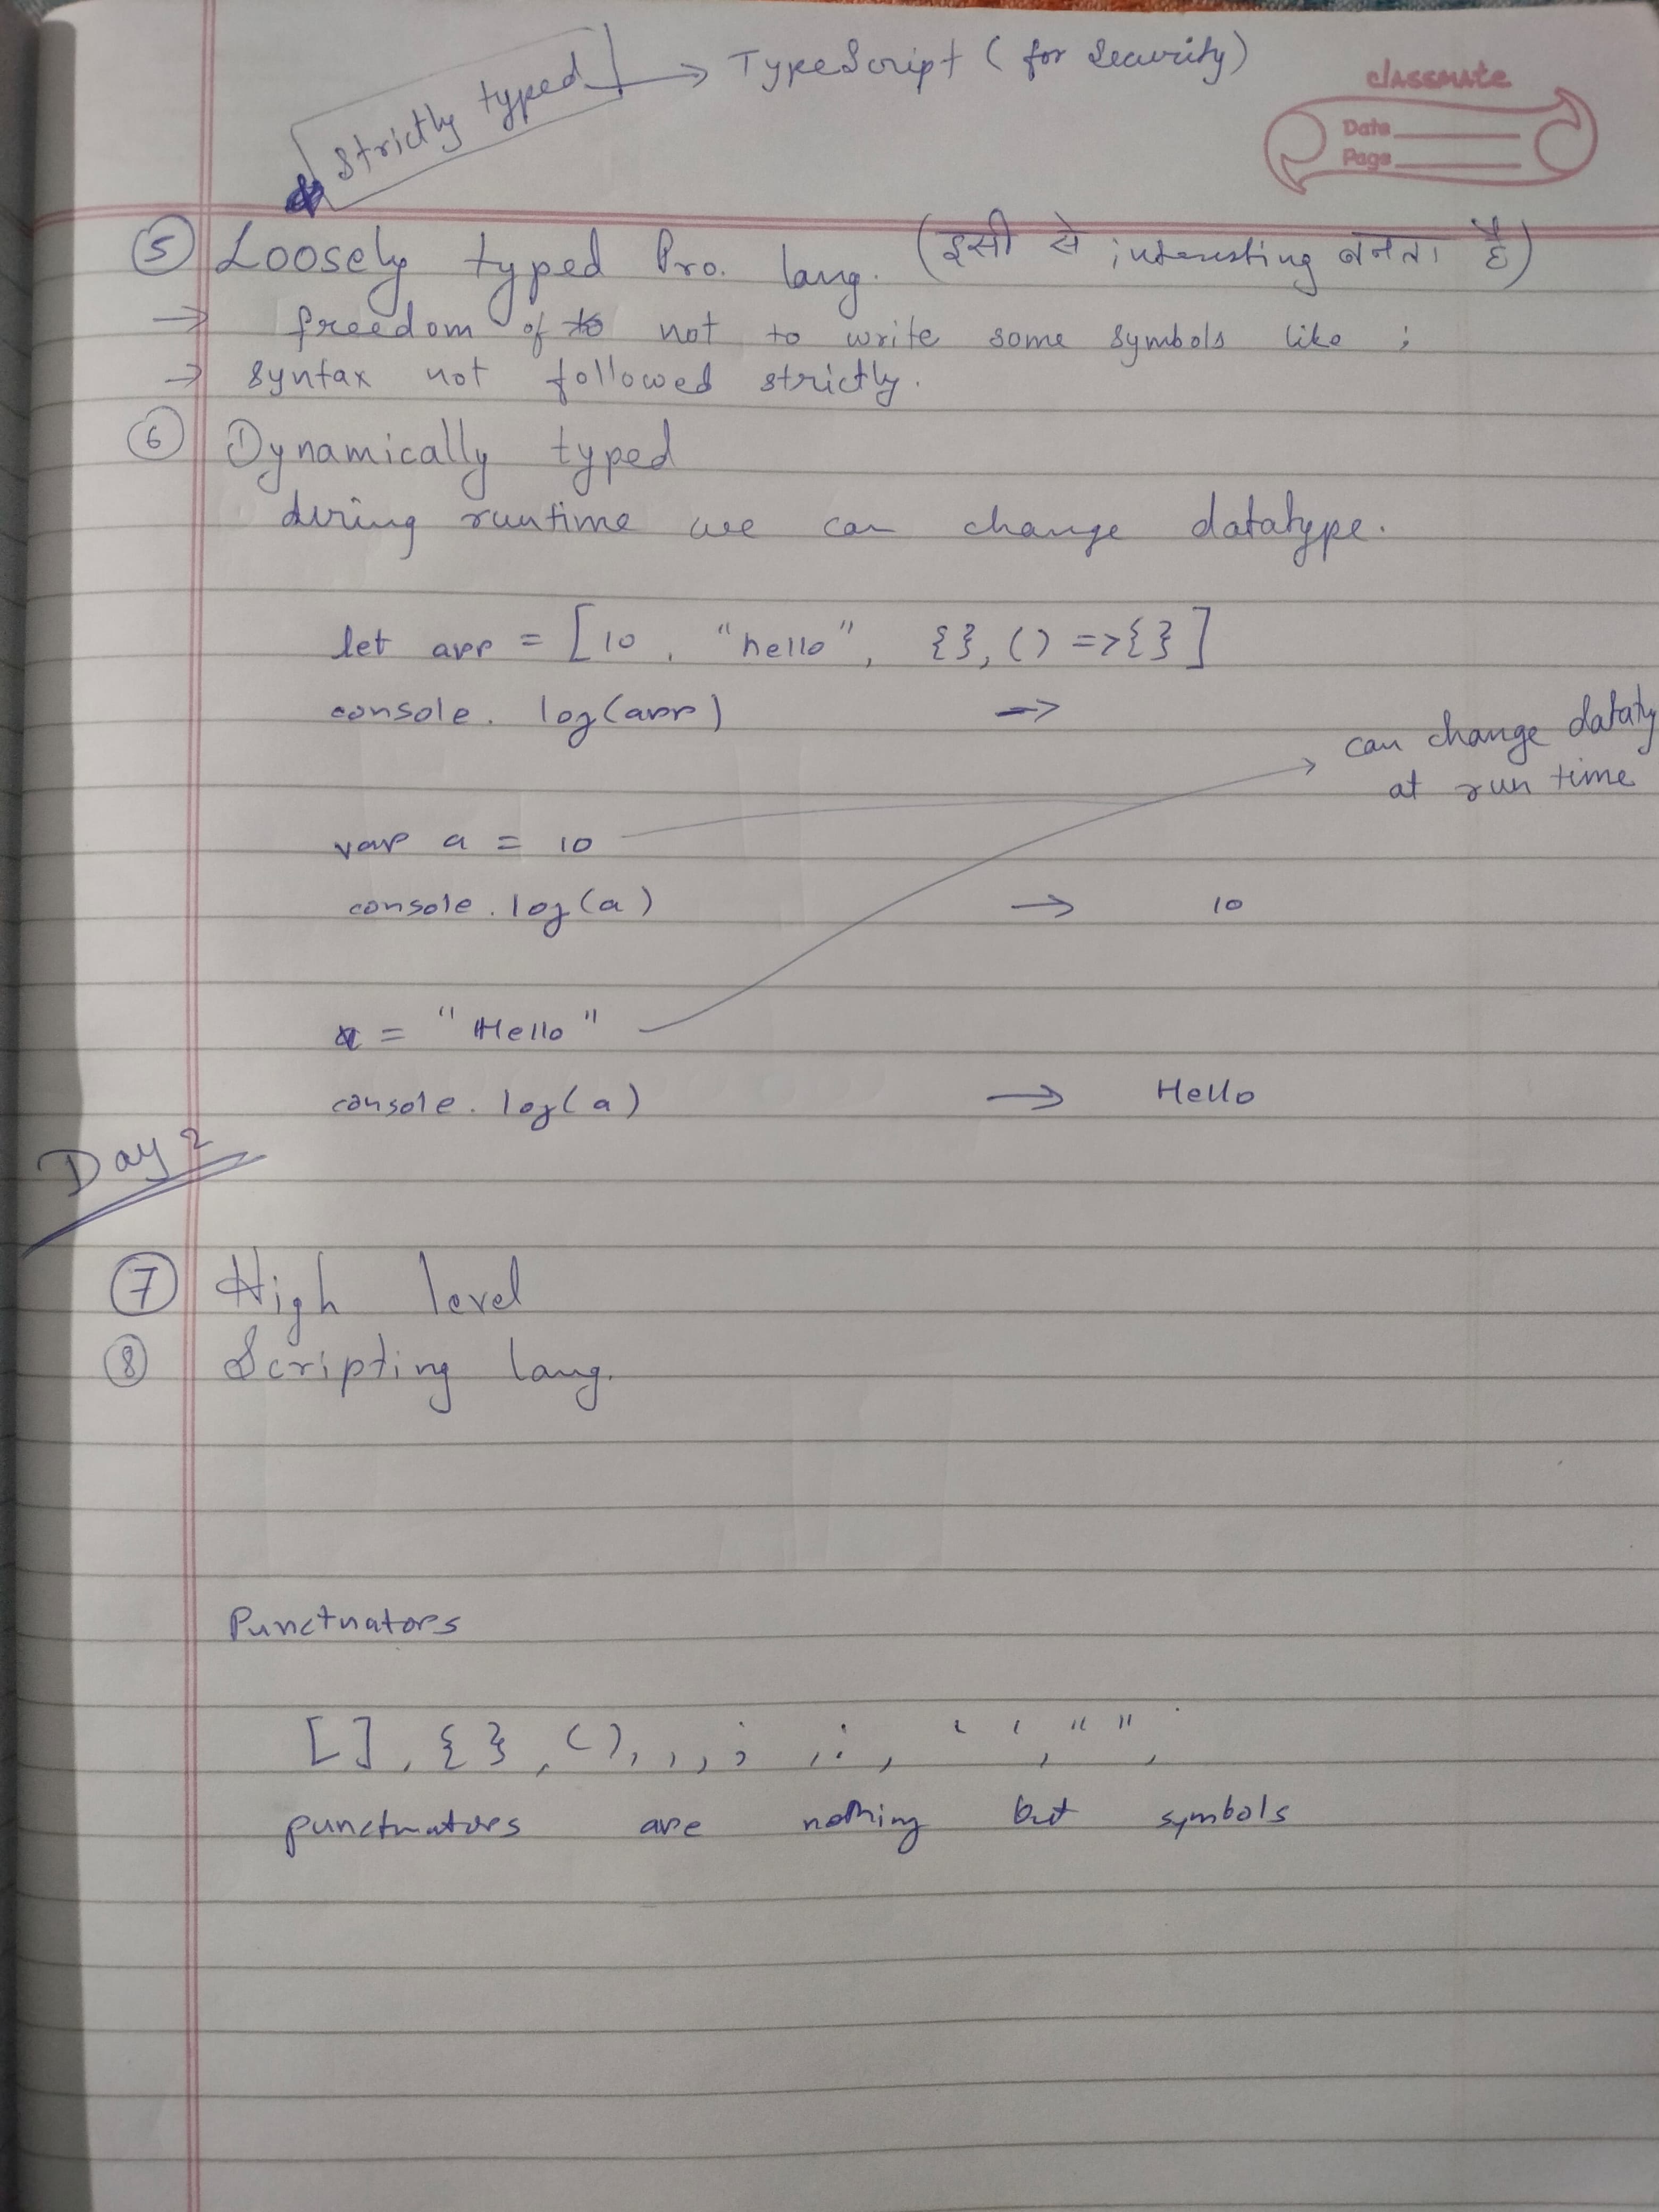 Strictly typed → TypeScript ( for Security)
classmate
Date
Page
⑤ Loosely typed Pro. lang. (इसी से interesting बनता है)
→ freedom of not to write some symbols like ;
→ syntax not followed strictly.
⑥ Dynamically typed
during runtime we can change datatype.
let arr = [10, "hello", {}, () => {}]
console. log(arr) →
can change dataty
at run time
var a = 10
console. log(a) → 10
a = "Hello"
console. log(a) → Hello
Day 2
⑦ High level
⑧ Scripting lang.
Punctuators
[], {}, (), , , ; , : , ' ', " ",
punctuators are nothing but symbols